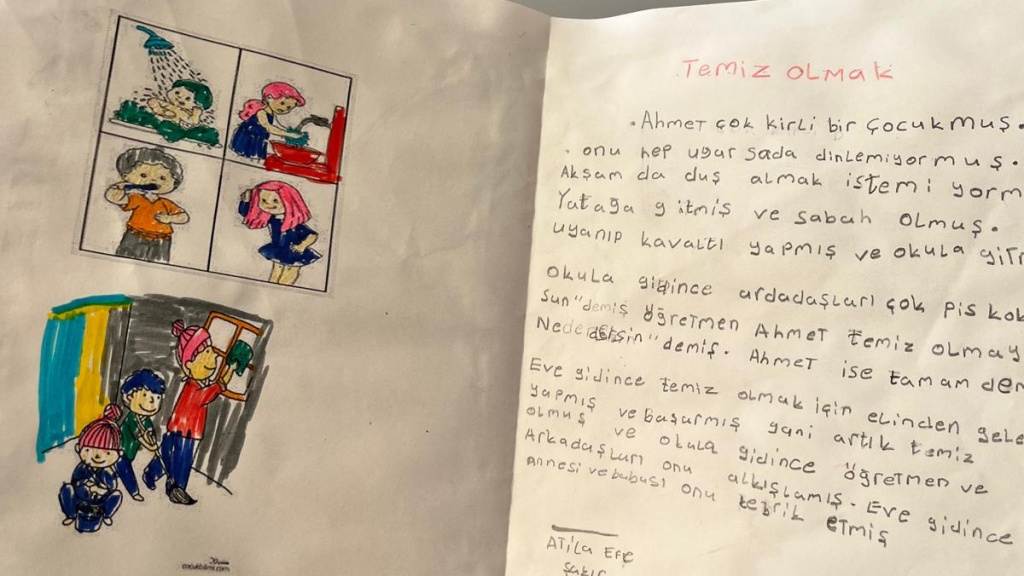 Temiz olmak
Ahmet çok kirli bir çocukmuş.
onu hep uyarsada dinlemiyormuş.
Akşam da duş almak istemiyorm
Yatağa gitmiş ve sabah olmuş.
uyanıp kavaltı yapmış ve okula gitm
okula gidince ardadaşları çok pis kok
sun" demiş öğretmen Ahmet temiz olmay
demiş. Ahmet ise tamam dem
Eve gidince temiz olmak için elinden gele
yapmış ve başarmış yani artık temiz
olmuş ve okula gidince öğretmen ve
Arkadaşları onu alkışlamış. Eve gidince
Annesi ve babası onu tebrik etmiş
Atila Efe
Şakir
cocukbilmi.com